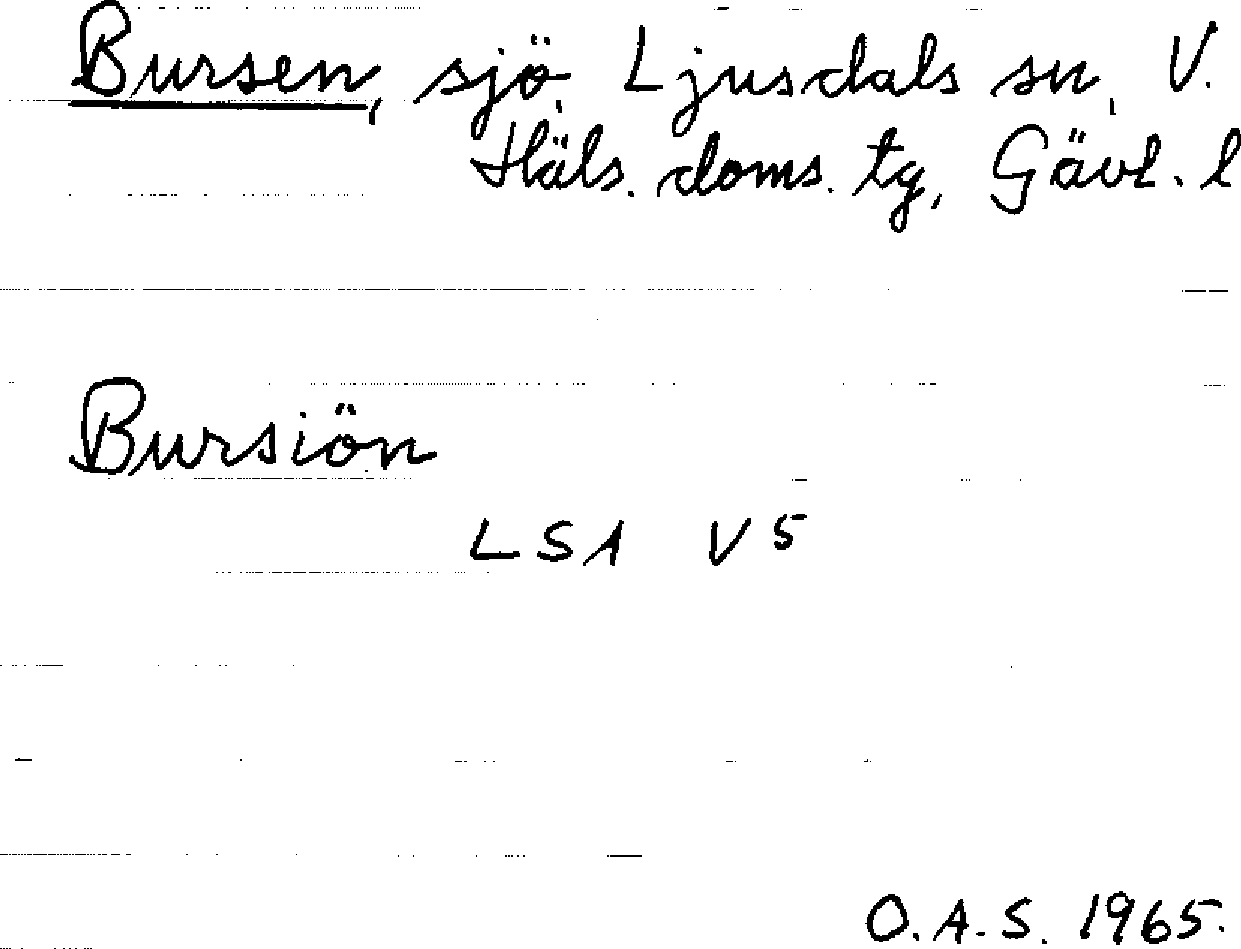 Bursen, sjö, Ljusdals sn, V.
Häls. doms. tg, Gävl. l
Bursiön
LSA V5
O.A.S. 1965.